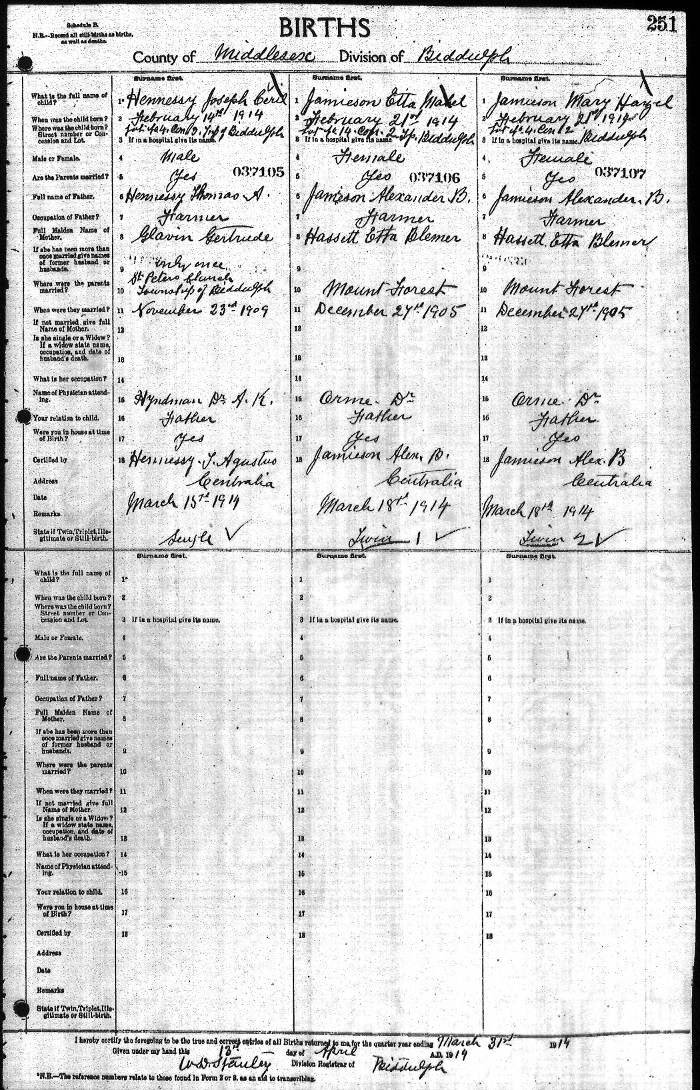 Schedule B.
N.B.—Record all still-births as births, as well as deaths.
BIRTHS
251
County of Middlesex Division of Biddulph
Surname first. Surname first. Surname first.
What is the full name of child? 1* Hennessy Joseph Cyril 1 Jamieson Etta Mabel 1 Jamieson Mary Hazel
When was the child born? 2 February 14th 1914 2 February 21st 1914 2 February 21st 1914
Where was the child born? Street number or Concession and Lot. Lot 4 Con 3. Tp of Biddulph Con. 2 Tp. Biddulph Con 2 Biddulph
3 If in a hospital give its name. 3 If in a hospital give its name. 3 If in a hospital give its name.
Male or Female. 4 Male 4 Female 4 Female
Are the Parents married? 5 Yes 037105 5 Yes 037106 5 Yes 037107
Full name of Father. 6 Hennessy Thomas A. 6 Jamieson Alexander B. 6 Jamieson Alexander. B.
Occupation of Father? 7 Farmer 7 Farmer 7 Farmer
Full Maiden Name of Mother. 8 Glavin Gertrude 8 Hassett Etta Blemer 8 Hassett Etta Blemer
If she has been more than once married give names of former husband or husbands. 9 only once 9 9
Where were the parents married? 10 St Peters Church Township of Biddulph 10 Mount Forest 10 Mount Forest
When were they married? 11 November 23rd 1909 11 December 27th 1905 11 December 27th 1905
If not married give full Name of Mother. 12 12 12
Is she single or a Widow? If a widow state name, occupation, and date of husband's death. 13 13 13
What is her occupation? 14 14 14
Name of Physician attending. 15 Hyndman Dr. A. K. 15 Orme. Dr 15 Orme. Dr
Your relation to child. 16 Father 16 Father 16 Father
Were you in house at time of Birth? 17 Yes 17 Yes 17 Yes
Certified by 18 Hennessy. T. Agustus 18 Jamieson Alex. B. 18 Jamieson Alex. B
Address Centralia Centralia Centralia
Date March 15th 1914 March 18th 1914 March 18th 1914
Remarks
State if Twin, Triplet, Illegitimate or Still-birth. Single ✓ Twin 1 ✓ Twin 2 ✓
Surname first. Surname first. Surname first.
What is the full name of child? 1* 1 1
When was the child born? 2 2 2
Where was the child born? Street number or Concession and Lot. 3 If in a hospital give its name. 3 If in a hospital give its name. 3 If in a hospital give its name.
Male or Female. 4 4 4
Are the Parents married? 5 5 5
Full name of Father. 6 6 6
Occupation of Father? 7 7 7
Full Maiden Name of Mother. 8 8 8
If she has been more than once married give names of former husband or husbands. 9 9 9
Where were the parents married? 10 10 10
When were they married? 11 11 11
If not married give full Name of Mother. 12 12 12
Is she single or a Widow? If a widow state name, occupation, and date of husband's death. 13 13 13
What is her occupation? 14 14 14
Name of Physician attending. 15 15 15
Your relation to child. 16 16 16
Were you in house at time of Birth? 17 17 17
Certified by 18 18 18
Address
Date
Remarks
State if Twin, Triplet, Illegitimate or Still-birth.
I hereby certify the foregoing to be the true and correct entries of all Births returned to me for the quarter year ending March 31st 1914
Given under my hand this 13th day of April A.D. 1914
W.D. Stanley Division Registrar of Biddulph
*N.B.—The reference numbers relate to those found in Form 2 or 9. as an aid to transcribing.